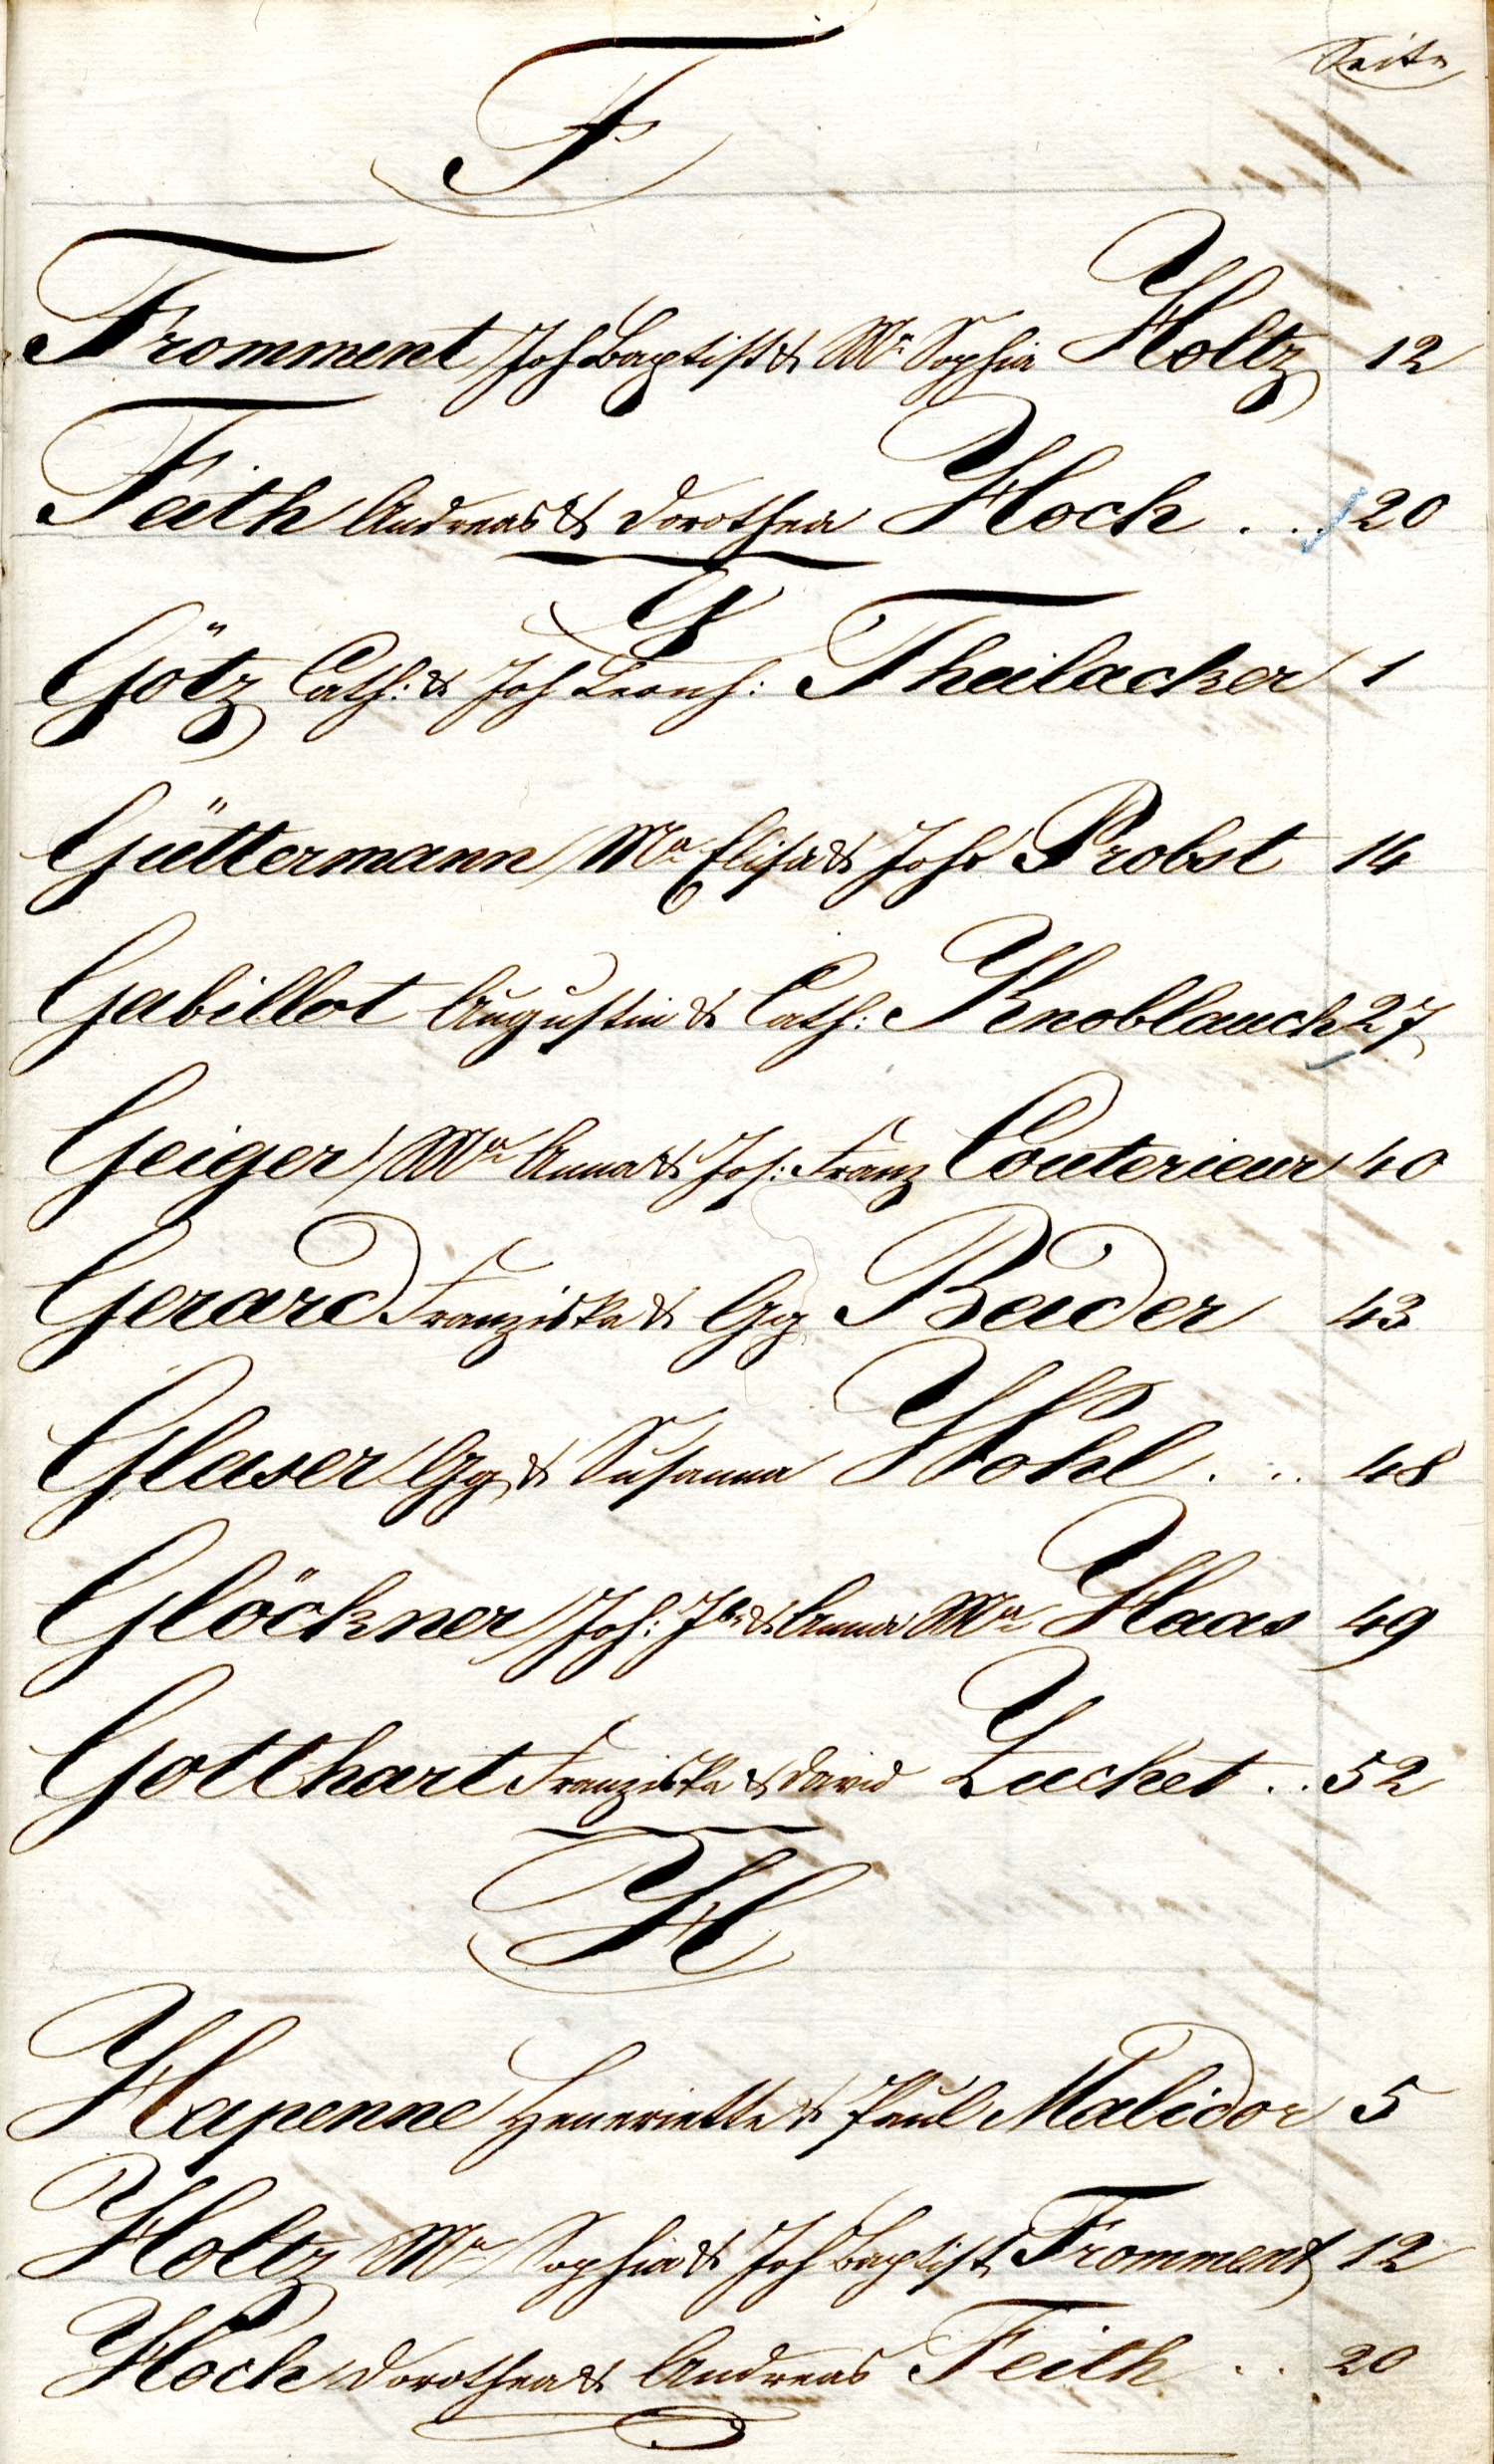 Seite
F
Fromment Joh Baptist & Mª Sophia Holtz 12
Feith Andreas & Dorothea Hoch ... 20
G
Götz Cath: & Joh Leonh: Theilacker 1
Güttermann Mª Elisa & Joh Probst 14
Gabillot Augustin & Cath: Knoblauch 27
Geiger Mª Anna & Jos: Franz Couterieur 40
Gerard Franziska & Gg Bader 43
Glaser Gg & Susanna Hohl ... 48
Glöckner Joh: & Anna Mª Haas 49
Gotthart Franziska & David Luchet .. 52
H
Hapenne Henriette & Paul Malidor 5
Holtz Mª Sophia & Joh Baptist Fromment 12
Hoch Dorothea & Andreas Feith .. 20